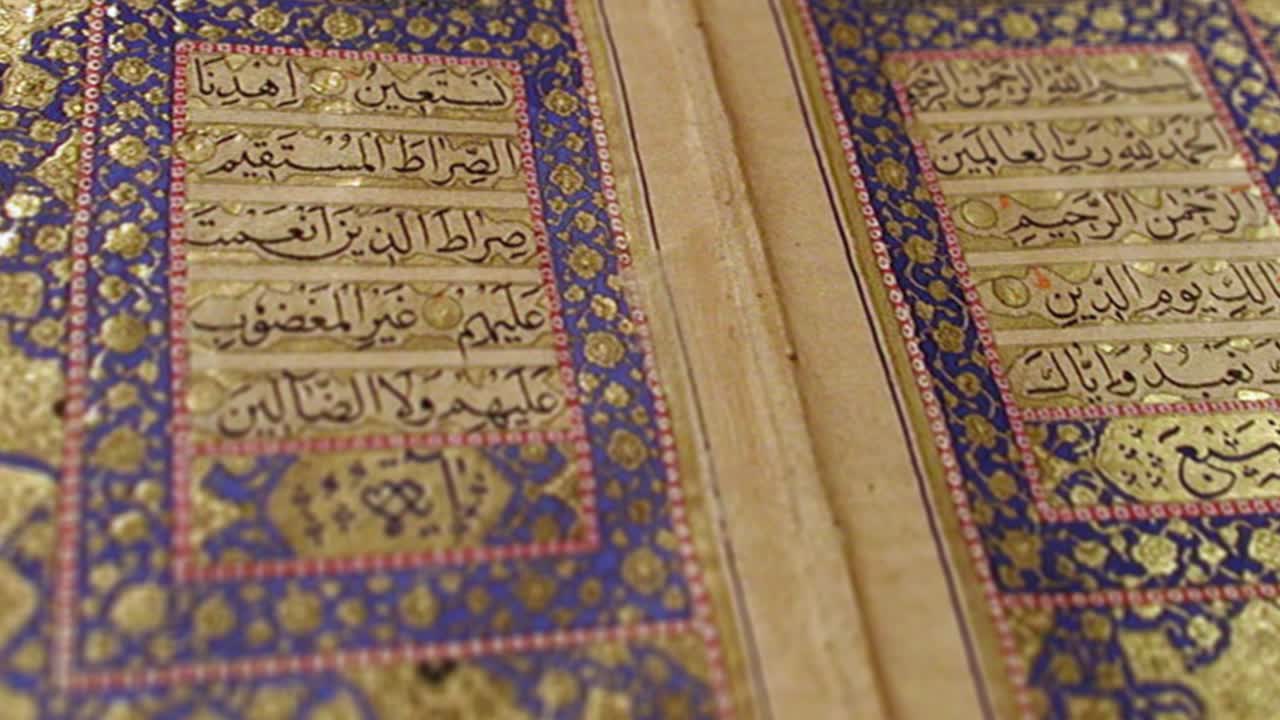 بِسْمِ اللهِ الرَّحْمٰنِ الرَّحِيْمِ
اَلْحَمْدُ لِلّٰهِ رَبِّ الْعَالَمِيْنَ
الرَّحْمٰنِ الرَّحِيْمِ
الِكِ يَوْمِ الدِّيْنِ
نَعْبُدُ وَاِيَّاكَ
سَبْعَ
نَسْتَعِيْنُ اِهْدِنَا
الصِّرَاطَ الْمُسْتَقِيْمَ
صِرَاطَ الَّذِيْنَ اَنْعَمْتَ
عَلَيْهِمْ غَيْرِ الْمَغْضُوْبِ
عَلَيْهِمْ وَلَا الضَّالِّيْنَ